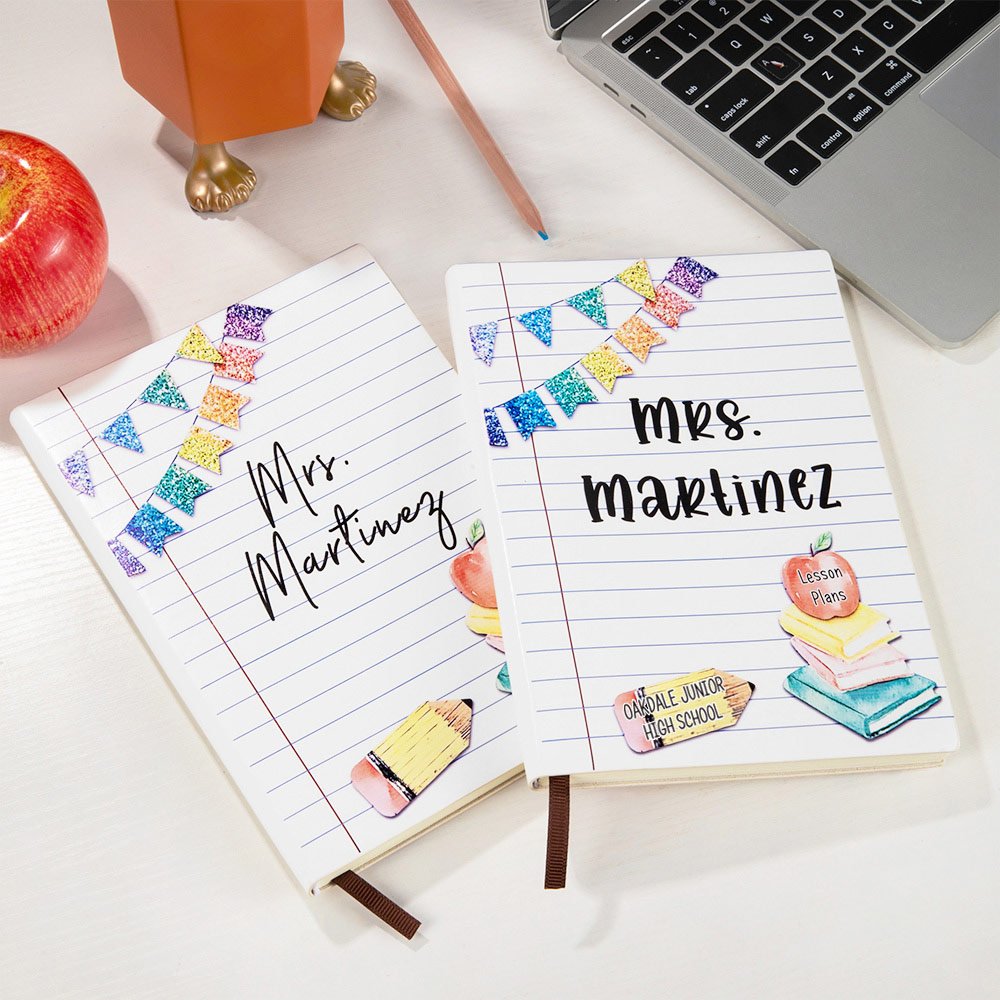 esc
1
2
tab
Q
W
caps lock
A
S
shift
Z
X
fn
control
option
command
⌘
Mrs.
Martinez
Mrs.
Martinez
Lesson
Plans
OAKDALE JUNIOR
HIGH SCHOOL